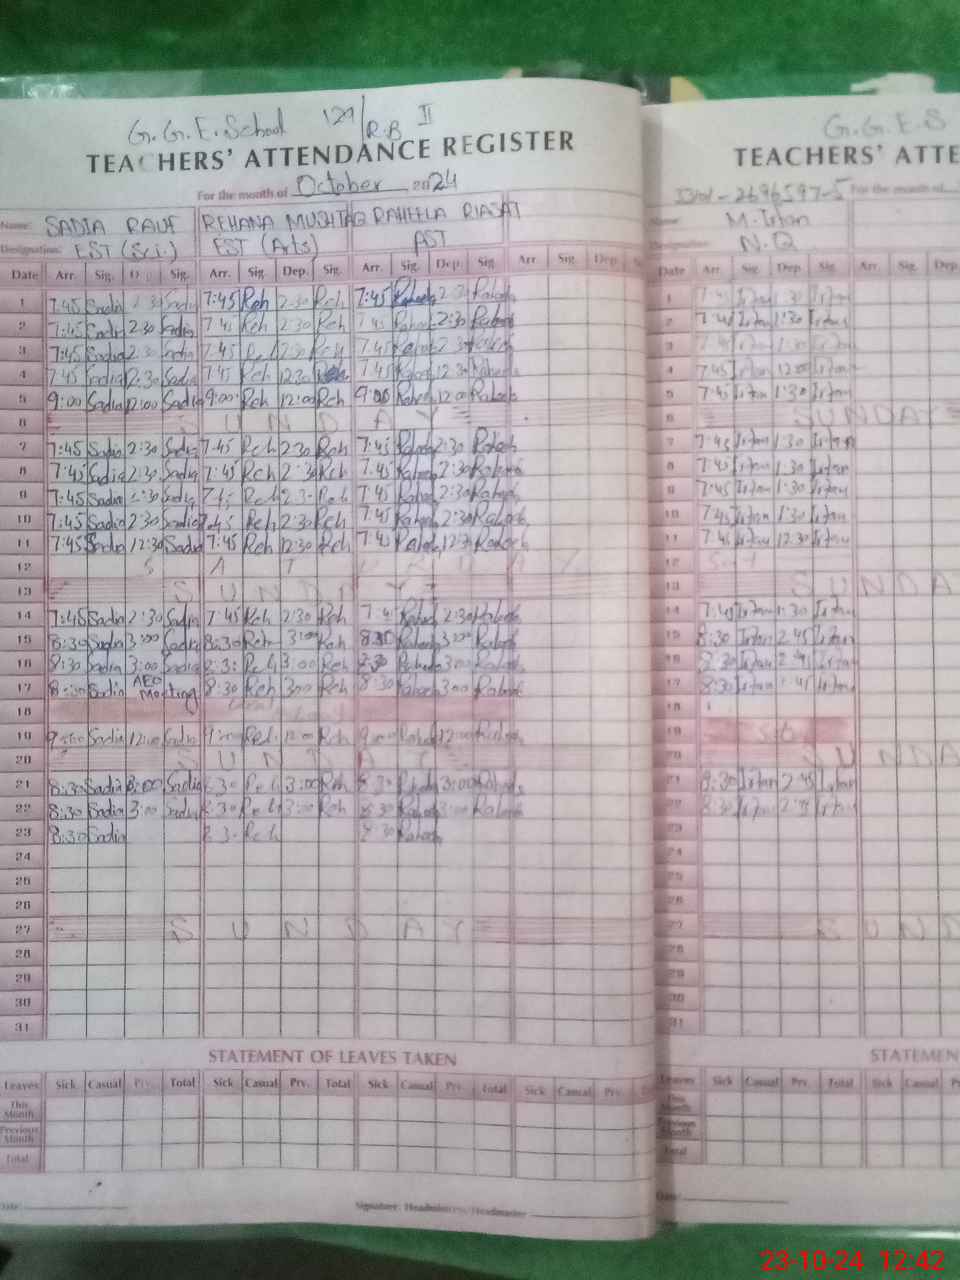 G.G.E.School 129/R.B II
TEACHERS' ATTENDANCE REGISTER
For the month of October 2024
Name: SADIA RAUF REHANA MUSHTAQ RAHEELA RIASAT
Designation: EST (Sci.) EST (Arts) AST
Date Arr. Sig. Dep. Sig. Arr. Sig. Dep. Sig. Arr. Sig. Dep. Sig. Arr Sig. Dep.
1 7:45 Sadia 2:30 Sadia 7:45 Reh 2:30 Reh 7:45 Raheela 2:30 Raheela
2 7:45 Sadia 2:30 Sadia 7:45 Reh 2:30 Reh 7:45 Raheela 2:30 Raheela
3 7:45 Sadia 2:30 Sadia 7:45 Reh 2:30 Reh 7:45 Raheela 2:30 Raheela
4 7:45 Sadia 12:30 Sadia 7:45 Reh 12:30 Reh 7:45 Raheela 12:30 Raheela
5 9:00 Sadia 12:00 Sadia 9:00 Reh 12:00 Reh 9:00 Raheela 12:00 Raheela
6 SUNDAY
7 7:45 Sadia 2:30 Sadia 7:45 Reh 2:30 Reh 7:45 Raheela 2:30 Raheela
8 7:45 Sadia 2:30 Sadia 7:45 Reh 2:30 Reh 7:45 Raheela 2:30 Raheela
9 7:45 Sadia 2:30 Sadia 7:45 Reh 2:30 Reh 7:45 Raheela 2:30 Raheela
10 7:45 Sadia 2:30 Sadia 7:45 Reh 2:30 Reh 7:45 Raheela 2:30 Raheela
11 7:45 Sadia 12:30 Sadia 7:45 Reh 12:30 Reh 7:45 Raheela 12:30 Raheela
12 SATURDAY
13 SUNDAY
14 7:45 Sadia 2:30 Sadia 7:45 Reh 2:30 Reh 7:45 Raheela 2:30 Raheela
15 8:30 Sadia 3:00 Sadia 8:30 Reh 3:00 Reh 8:30 Raheela 3:00 Raheela
16 8:30 Sadia 3:00 Sadia 8:30 Reh 3:00 Reh 8:30 Raheela 3:00 Raheela
17 8:30 Sadia AEO Meeting 8:30 Reh 3:00 Reh 8:30 Raheela 3:00 Raheela
18
19 9:00 Sadia 12:00 Sadia 9:00 Reh 12:00 Reh 9:00 Raheela 12:00 Raheela
20 SUNDAY
21 8:30 Sadia 3:00 Sadia 8:30 Reh 3:00 Reh 8:30 Raheela 3:00 Raheela
22 8:30 Sadia 3:00 Sadia 8:30 Reh 3:00 Reh 8:30 Raheela 3:00 Raheela
23 8:30 Sadia 8:30 Reh 8:30 Raheela
24
25
26
27 SUNDAY
28
29
30
31
STATEMENT OF LEAVES TAKEN
Leaves Sick Casual Prv. Total Sick Casual Prv. Total Sick Casual Prv. Total Sick Casual Prv.
This Month
Previous Month
Total
Date: Signature: Headmistress/Headmaster
G.G.E.S
TEACHERS' ATTE
For the month of
Name: M. Irfan
Designation: N.Q
Date Arr. Sig. Dep. Sig. Arr. Sig. Dep.
1 7:45 Irfan 1:30 Irfan
2 7:45 Irfan 1:30 Irfan
3 7:45 Irfan 1:30 Irfan
4 7:45 Irfan 12:00 Irfan
5 7:45 Irfan 1:30 Irfan
6 SUNDAY
7 7:45 Irfan 1:30 Irfan
8 7:45 Irfan 1:30 Irfan
9 7:45 Irfan 1:30 Irfan
10 7:45 Irfan 1:30 Irfan
11 7:45 Irfan 12:30 Irfan
12 Sat
13 SUNDA
14 7:45 Irfan 1:30 Irfan
15 8:30 Irfan 2:45 Irfan
16 8:30 Irfan 2:45 Irfan
17 8:30 Irfan 2:45 Irfan
18
19 Sat
20 SUNDA
21 8:30 Irfan 2:45 Irfan
22 8:30 Irfan 2:45 Irfan
23
24
25
26
27 SUND
28
29
30
31
STATEMEN
Leaves Sick Casual Prv. Total Sick Casual
This Month
Previous Month
Total
Date:
23-10-24 12:42